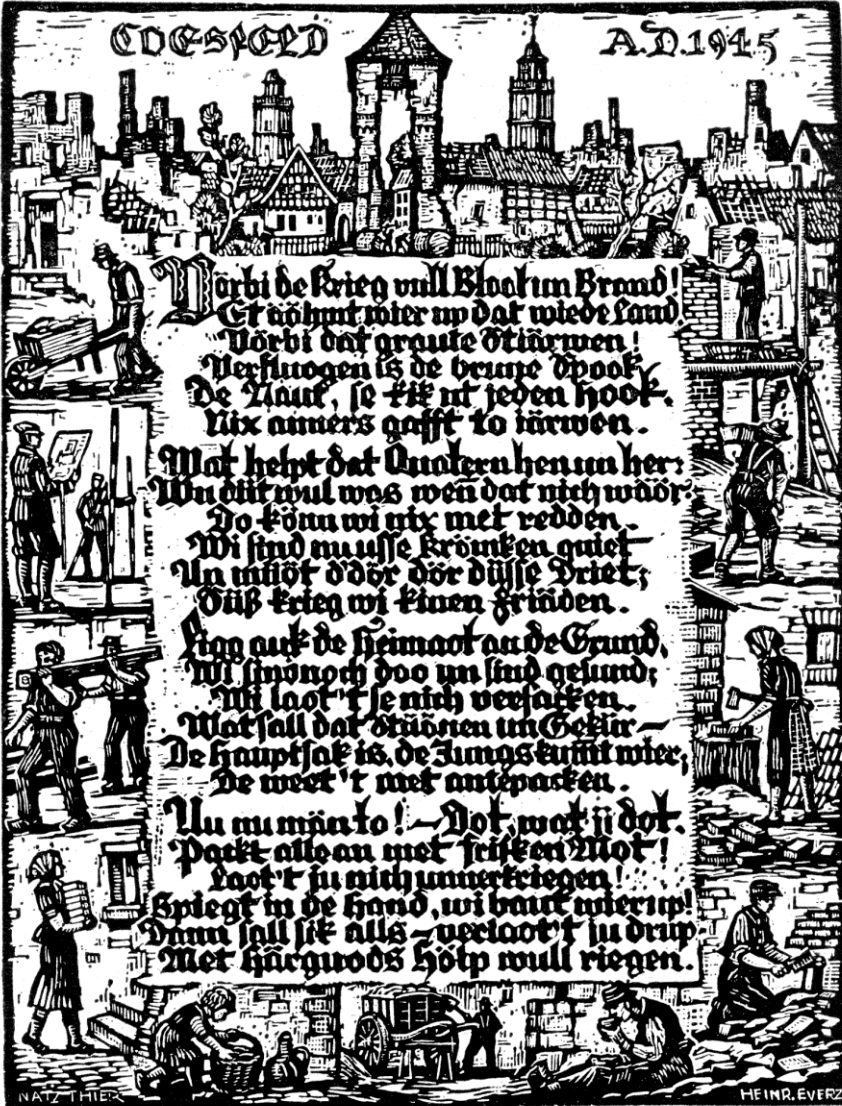 COESFELD A.D.1945
Vörbi de Krieg vull Bloot un Brand!
Et wier up dat wiede Land
Vörbi dat graute Stiärwen!
Verfluogen is de brune Spook,
De Naut, se kik ut jeden Hook.
Nix anners gafft to iärwen.
Wat helpt dat Quatern hen un her:
Wu düt wul was wen dat nich wäör:
Do könn wi nix met redden.
Wi sind nu usse Krömken quiet
Un müöt d'dör dör düsse Driet;
Süß krieg wi kinen Friäden.
Ligg auk de Heimaot an de Grund,
Wi sind noch doo un sind gesund;
Wi laot't se nich versacken.
Wat sall dat Stüönen un Geklir —
De Hauptsak is, de Jungs kummt wier,
De weet't met antepacken.
Nu nu män to! — Dot, wat ji dot.
Packt alle an met frisken Mot!
Laot't ju nich unnerkriegen!
Spiegt in de Hand, wi baut wier up!
Dann sall sik alls — verlaot't ju drup
Met Härguods Hölp wull riegen.
NATZ THIER HEINR. EVERZ